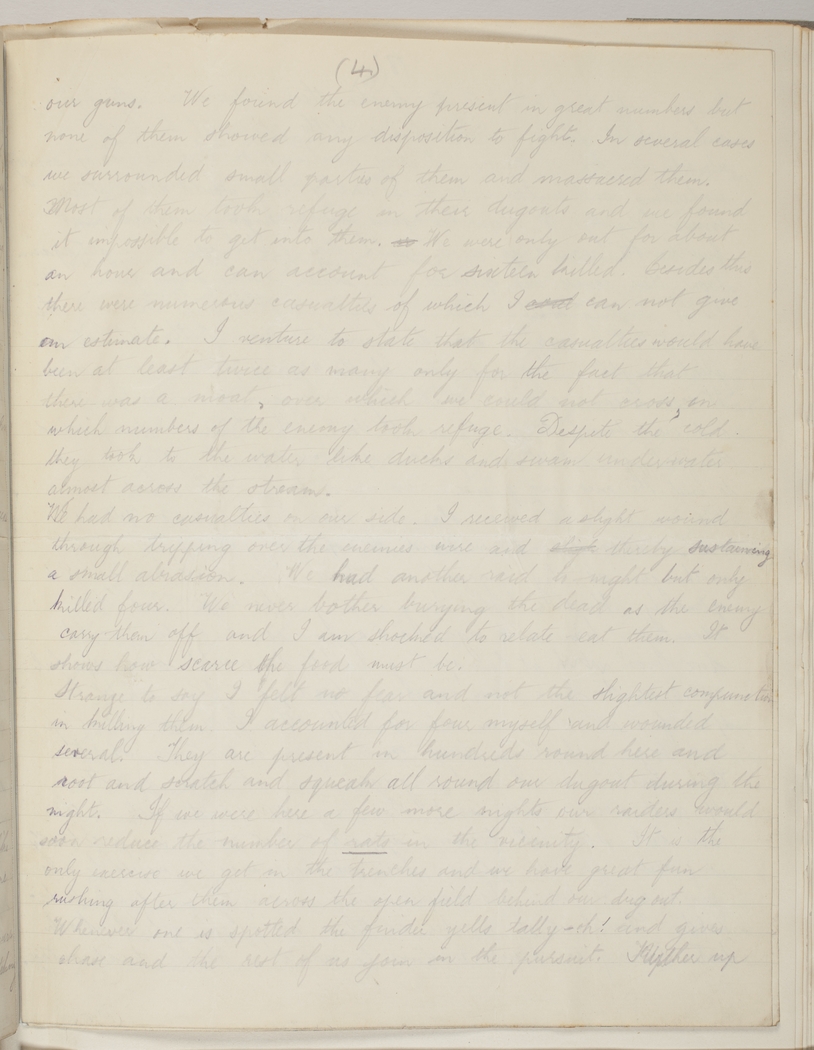 (4)
our guns. We found the enemy present in great numbers but
none of them showed any disposition to fight. In several cases
we surrounded small parties of them and massacred them.
Most of them took refuge in their dugouts and we found
it impossible to get into them. We were only out for about
an hour and can account for sixteen killed. Besides this
there were numerous casualties of which I can not give
an estimate. I venture to state that the casualties would have
been at least twice as many only for the fact that
there was a moat, over which we could not cross, in
which numbers of the enemy took refuge. Despite the cold
they took to the water like ducks and swam underwater
almost across the stream.
We had no casualties on our side. I received a slight wound
through tripping over the enemies wire and thereby sustaining
a small abrasion. We had another raid to night but only
killed four. We never bother burying the dead as the enemy
carry them off and I am shocked to relate eat them. It
shows how scarce the food must be.
Strange to say I felt no fear and not the slightest compunction
in killing them. I accounted for four myself and wounded
several. They are present in hundreds round here and
root and scratch and squeak all round our dugout during the
night. If we were here a few more nights our raiders would
soon reduce the number of rats in the vicinity. It is the
only exercise we get in the trenches and we have great fun
rushing after them across the open field behind our dug out.
Whenever one is spotted the finder yells tally-oh! and gives
chase and the rest of us join in the pursuit. up